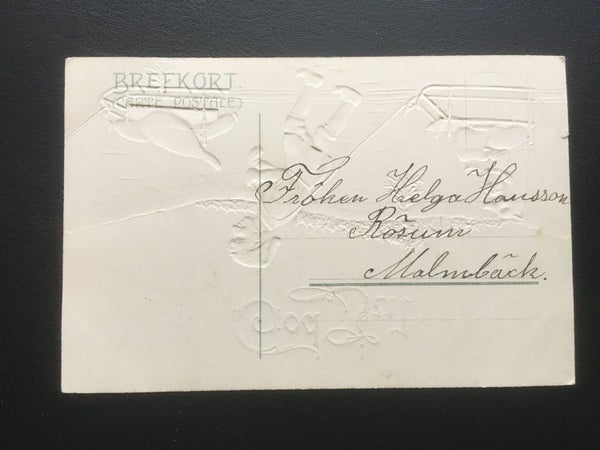 BREFKORT
(CARTE POSTALE.)
Fröken Helga Hansson
Rösum
Malmbäck.
God Jul